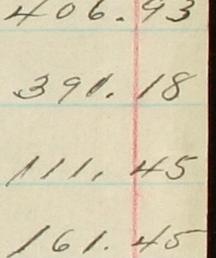 406.93
391.18
111.45
161.45